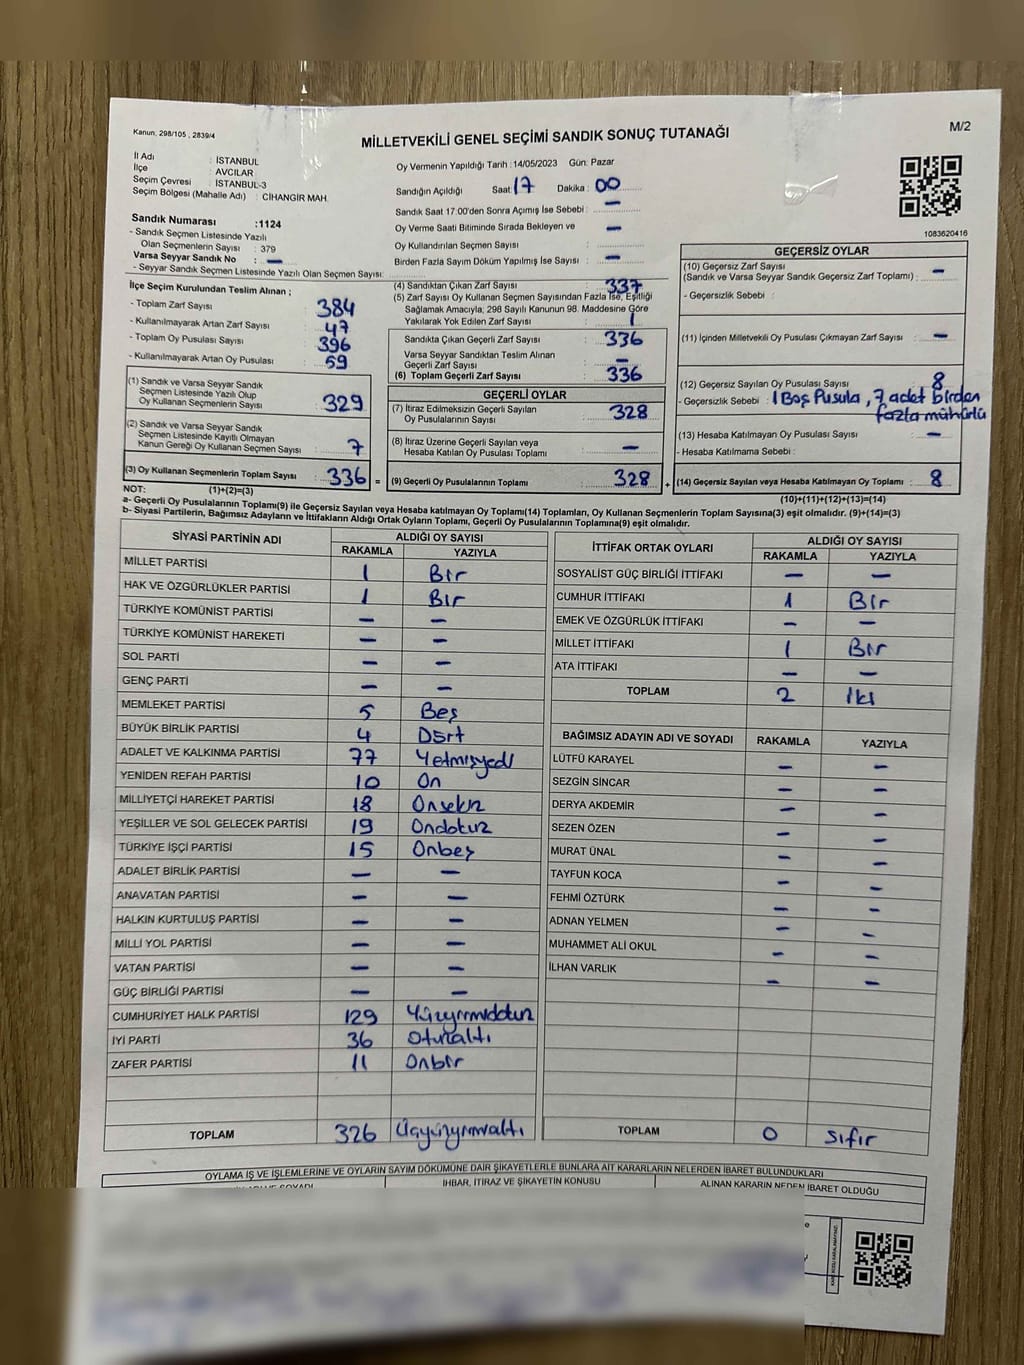 Kanun, 298/105 , 2839/4
MİLLETVEKİLİ GENEL SEÇİMİ SANDIK SONUÇ TUTANAĞI
M/2
İl Adı : İSTANBUL
İlçe : AVCILAR
Seçim Çevresi : İSTANBUL-3
Seçim Bölgesi (Mahalle Adı) : CİHANGİR MAH.
Sandık Numarası :1124
- Sandık Seçmen Listesinde Yazılı
Olan Seçmenlerin Sayısı : 379
Varsa Seyyar Sandık No : –
- Seyyar Sandık Seçmen Listesinde Yazılı Olan Seçmen Sayısı:
Oy Vermenin Yapıldığı Tarih :14/05/2023 Gün: Pazar
Sandığın Açıldığı Saat: 17 Dakika : 00
Sandık Saat 17:00'den Sonra Açımış İse Sebebi : –
Oy Verme Saati Bitiminde Sırada Bekleyen ve : –
Oy Kullandırılan Seçmen Sayısı :
Birden Fazla Sayım Döküm Yapılmış İse Sayısı : –
1083620416
İlçe Seçim Kurulundan Teslim Alınan ;
- Toplam Zarf Sayısı : 384
- Kullanılmayarak Artan Zarf Sayısı : 47
- Toplam Oy Pusulası Sayısı : 396
- Kullanılmayarak Artan Oy Pusulası : 59
(1) Sandık ve Varsa Seyyar Sandık
Seçmen Listesinde Yazılı Olup
Oy Kullanan Seçmenlerin Sayısı : 329
(2) Sandık ve Varsa Seyyar Sandık
Seçmen Listesinde Kayıtlı Olmayan
Kanun Gereği Oy Kullanan Seçmen Sayısı : 7
(3) Oy Kullanan Seçmenlerin Toplam Sayısı : 336 =
(4) Sandıktan Çıkan Zarf Sayısı : 337
(5) Zarf Sayısı Oy Kullanan Seçmen Sayısından Fazla İse, Eşitliği
Sağlamak Amacıyla, 298 Sayılı Kanunun 98. Maddesine Göre
Yakılarak Yok Edilen Zarf Sayısı : 1
Sandıkta Çıkan Geçerli Zarf Sayısı : 336
Varsa Seyyar Sandıktan Teslim Alınan
Geçerli Zarf Sayısı : –
(6) Toplam Geçerli Zarf Sayısı : 336
GEÇERLİ OYLAR
(7) İtiraz Edilmeksizin Geçerli Sayılan
Oy Pusulalarının Sayısı : 328
(8) İtiraz Üzerine Geçerli Sayılan veya
Hesaba Katılan Oy Pusulası Toplamı : –
(9) Geçerli Oy Pusulalarının Toplamı : 328 +
GEÇERSİZ OYLAR
(10) Geçersiz Zarf Sayısı
(Sandık ve Varsa Seyyar Sandık Geçersiz Zarf Toplamı) : –
- Geçersizlik Sebebi :
(11) İçinden Milletvekili Oy Pusulası Çıkmayan Zarf Sayısı : –
(12) Geçersiz Sayılan Oy Pusulası Sayısı : 8
- Geçersizlik Sebebi : 1 Boş Pusula , 7 adet birden
fazla mühürlü
(13) Hesaba Katılmayan Oy Pusulası Sayısı : –
- Hesaba Katılmama Sebebi :
(14) Geçersiz Sayılan veya Hesaba Katılmayan Oy Toplamı : 8
NOT: (1)+(2)=(3)
(10)+(11)+(12)+(13)=(14)
a- Geçerli Oy Pusulalarının Toplamı(9) ile Geçersiz Sayılan veya Hesaba katılmayan Oy Toplamı(14) Toplamları, Oy Kullanan Seçmenlerin Toplam Sayısına(3) eşit olmalıdır. (9)+(14)=(3)
b- Siyasi Partilerin, Bağımsız Adayların ve İttifakların Aldığı Ortak Oyların Toplamı, Geçerli Oy Pusulalarının Toplamına(9) eşit olmalıdır.
SİYASİ PARTİNİN ADI ALDIĞI OY SAYISI
RAKAMLA YAZIYLA
MİLLET PARTİSİ 1 Bir
HAK VE ÖZGÜRLÜKLER PARTİSİ 1 Bir
TÜRKİYE KOMÜNİST PARTİSİ – –
TÜRKİYE KOMÜNİST HAREKETİ – –
SOL PARTİ – –
GENÇ PARTİ – –
MEMLEKET PARTİSİ 5 Beş
BÜYÜK BİRLİK PARTİSİ 4 Dört
ADALET VE KALKINMA PARTİSİ 77 Yetmişyedi
YENİDEN REFAH PARTİSİ 10 On
MİLLİYETÇİ HAREKET PARTİSİ 18 Onsekiz
YEŞİLLER VE SOL GELECEK PARTİSİ 19 Ondokuz
TÜRKİYE İŞÇİ PARTİSİ 15 Onbeş
ADALET BİRLİK PARTİSİ – –
ANAVATAN PARTİSİ – –
HALKIN KURTULUŞ PARTİSİ – –
MİLLİ YOL PARTİSİ – –
VATAN PARTİSİ – –
GÜÇ BİRLİĞİ PARTİSİ – –
CUMHURİYET HALK PARTİSİ 129 Yüzyirmidokuz
İYİ PARTİ 36 Otuzaltı
ZAFER PARTİSİ 11 Onbir
TOPLAM 326 Üçyüzyirmialtı
İTTİFAK ORTAK OYLARI ALDIĞI OY SAYISI
RAKAMLA YAZIYLA
SOSYALİST GÜÇ BİRLİĞİ İTTİFAKI – –
CUMHUR İTTİFAKI 1 Bir
EMEK VE ÖZGÜRLÜK İTTİFAKI – –
MİLLET İTTİFAKI 1 Bir
ATA İTTİFAKI – –
TOPLAM 2 İki
BAĞIMSIZ ADAYIN ADI VE SOYADI RAKAMLA YAZIYLA
LÜTFÜ KARAYEL – –
SEZGİN SİNCAR – –
DERYA AKDEMİR – –
SEZEN ÖZEN – –
MURAT ÜNAL – –
TAYFUN KOCA – –
FEHMİ ÖZTÜRK – –
ADNAN YELMEN – –
MUHAMMET ALİ OKUL – –
İLHAN VARLIK – –
TOPLAM 0 sıfır
OYLAMA İŞ VE İŞLEMLERİNE VE OYLARIN SAYIM DÖKÜMÜNE DAİR ŞİKAYETLERLE BUNLARA AİT KARARLARIN NELERDEN İBARET BULUNDUKLARI
İHBAR, İTİRAZ VE ŞİKAYETİN KONUSU
ALINAN KARARIN NEDEN İBARET OLDUĞU